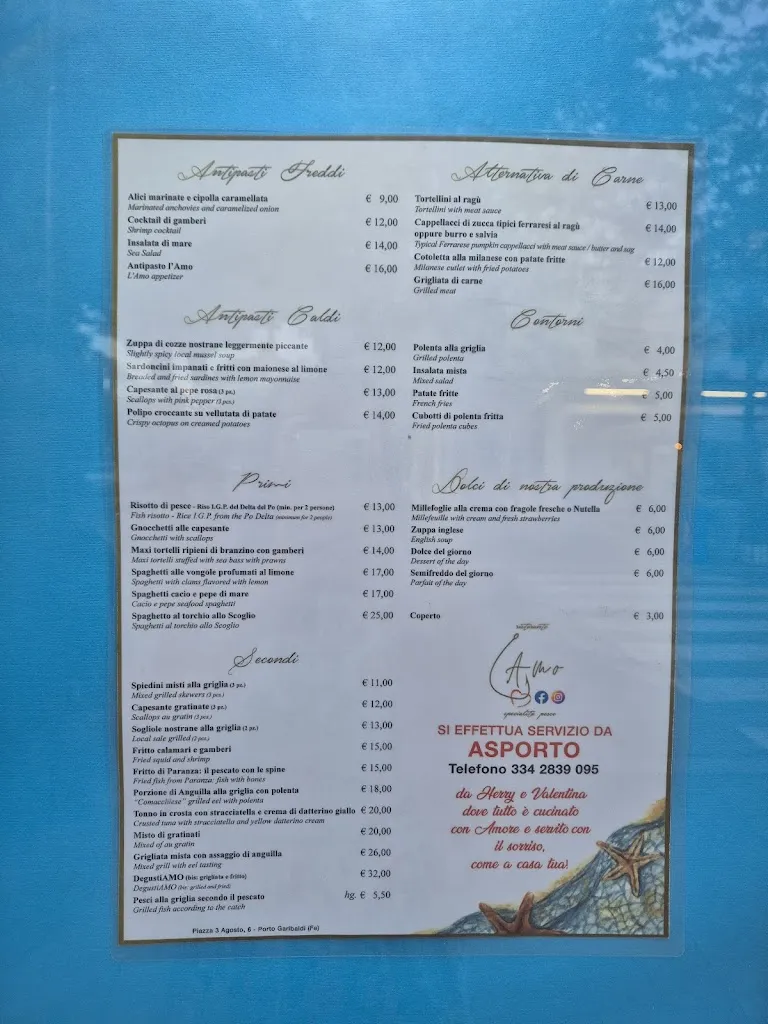 Antipasti Freddi
Alici marinate e cipolla caramellata € 9,00
Marinated anchovies and caramelized onion
Cocktail di gamberi € 12,00
Shrimp cocktail
Insalata di mare € 14,00
Sea Salad
Antipasto l'Amo € 16,00
L'Amo appetizer
Antipasti Caldi
Zuppa di cozze nostrane leggermente piccante € 12,00
Slightly spicy local mussel soup
Sardoncini impanati e fritti con maionese al limone € 12,00
Breaded and fried sardines with lemon mayonnaise
Capesante al pepe rosa (3 pz.) € 13,00
Scallops with pink pepper (3 pcs.)
Polipo croccante su vellutata di patate € 14,00
Crispy octopus on creamed potatoes
Primi
Risotto di pesce - Riso I.G.P. del Delta del Po (min. per 2 persone) € 13,00
Fish risotto - Rice I.G.P. from the Po Delta (minimum for 2 people)
Gnocchetti alle capesante € 13,00
Gnocchetti with scallops
Maxi tortelli ripieni di branzino con gamberi € 14,00
Maxi tortelli stuffed with sea bass with prawns
Spaghetti alle vongole profumati al limone € 17,00
Spaghetti with clams flavored with lemon
Spaghetti cacio e pepe di mare € 17,00
Cacio e pepe seafood spaghetti
Spaghetto al torchio allo Scoglio € 25,00
Spaghetti al torchio allo Scoglio
Secondi
Spiedini misti alla griglia (3 pz.) € 11,00
Mixed grilled skewers (3 pcs.)
Capesante gratinate (3 pz.) € 12,00
Scallops au gratin (3 pcs.)
Sogliole nostrane alla griglia (2 pz.) € 13,00
Local sole grilled (2 pcs.)
Fritto calamari e gamberi € 15,00
Fried squid and shrimp
Fritto di Paranza: il pescato con le spine € 15,00
Fried fish from Paranza: fish with bones
Porzione di Anguilla alla griglia con polenta € 18,00
"Comacchiese" grilled eel with polenta
Tonno in crosta con stracciatella e crema di datterino giallo € 20,00
Crusted tuna with stracciatella and yellow datterino cream
Misto di gratinati € 20,00
Mixed of au gratin
Grigliata mista con assaggio di anguilla € 26,00
Mixed grill with eel tasting
DegustiAMO (bis: grigliata e fritto) € 32,00
DegustiAMO (bis: grilled and fried)
Pesci alla griglia secondo il pescato hg. € 5,50
Grilled fish according to the catch
Piazza 3 Agosto, 6 - Porto Garibaldi (Fe)
Alternativa di Carne
Tortellini al ragù € 13,00
Tortellini with meat sauce
Cappellacci di zucca tipici ferraresi al ragù € 14,00
oppure burro e salvia
Typical Ferrarese pumpkin cappellacci with meat sauce / butter and sag
Cotoletta alla milanese con patate fritte € 12,00
Milanese cutlet with fried potatoes
Grigliata di carne € 16,00
Grilled meat
Contorni
Polenta alla griglia € 4,00
Grilled polenta
Insalata mista € 4,50
Mixed salad
Patate fritte € 5,00
French fries
Cubotti di polenta fritta € 5,00
Fried polenta cubes
Dolci di nostra produzione
Millefoglie alla crema con fragole fresche o Nutella € 6,00
Millefeuille with cream and fresh strawberries
Zuppa inglese € 6,00
English soup
Dolce del giorno € 6,00
Dessert of the day
Semifreddo del giorno € 6,00
Parfait of the day
Coperto € 3,00
ristorante
Amo
specialità pesce
SI EFFETTUA SERVIZIO DA
ASPORTO
Telefono 334 2839 095
da Herry e Valentina
dove tutto è cucinato
con Amore e servito con
il sorriso,
come a casa tua!